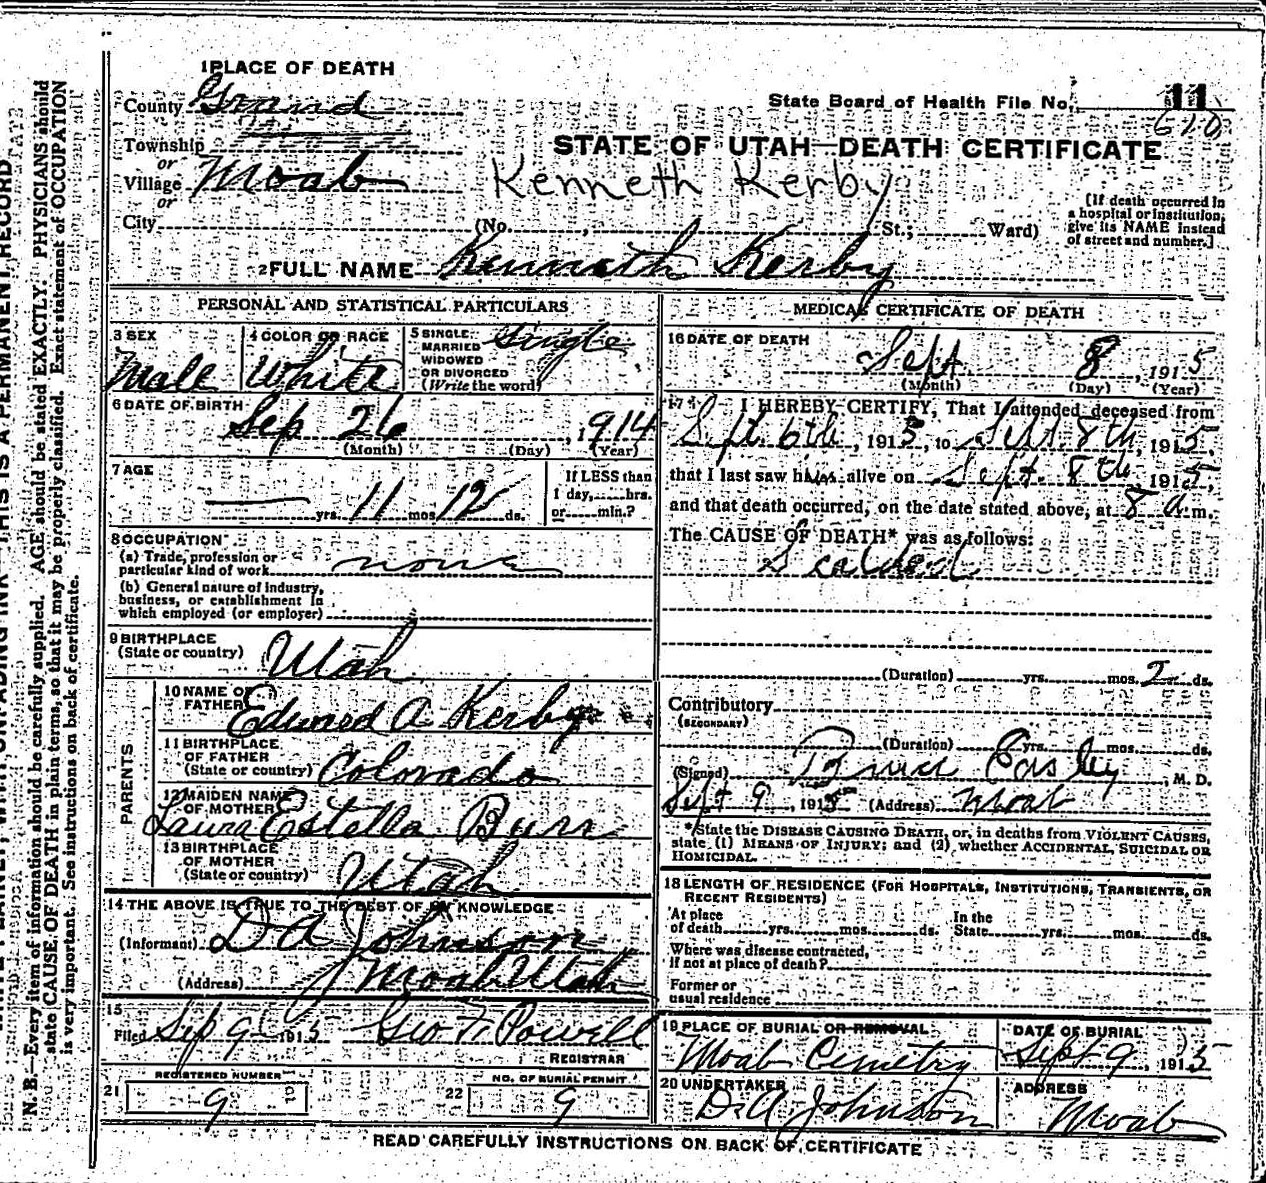 1 PLACE OF DEATH
County Grand
State Board of Health File No. 11
610
Township
or
Village Moab
or
City
STATE OF UTAH—DEATH CERTIFICATE
Kenneth Kerby
(No. , St.; Ward)
[If death occurred in
a hospital or institution,
give its NAME instead
of street and number.]
2 FULL NAME Kenneth Kerby
PERSONAL AND STATISTICAL PARTICULARS
3 SEX
Male
4 COLOR OR RACE
White
5 SINGLE,
MARRIED
WIDOWED
OR DIVORCED
(Write the word)
Single
6 DATE OF BIRTH
Sep 26, 1914
(Month) (Day) (Year)
7 AGE
— yrs. 11 mos. 12 ds.
If LESS than
1 day, hrs.
or min.?
8 OCCUPATION
(a) Trade, profession or
particular kind of work none
(b) General nature of industry,
business, or establishment in
which employed (or employer)
9 BIRTHPLACE
(State or country) Utah
PARENTS
10 NAME OF
FATHER Edmond A Kerby
11 BIRTHPLACE
OF FATHER
(State or country) Colorado
12 MAIDEN NAME
OF MOTHER Laura Estella Burr
13 BIRTHPLACE
OF MOTHER
(State or country) Utah
14 THE ABOVE IS TRUE TO THE BEST OF MY KNOWLEDGE
(Informant) D A Johnson
(Address) Moab Utah
15
Filed Sep 9 1915 Geo F. Powell
REGISTRAR
REGISTERED NUMBER
21 9
NO. OF BURIAL PERMIT
22 9
MEDICAL CERTIFICATE OF DEATH
16 DATE OF DEATH
Sept 8 1915
(Month) (Day) (Year)
17 I HEREBY CERTIFY, That I attended deceased from
Sept. 6th, 1915, to Sept 8th, 1915,
that I last saw him alive on Sept. 8th 1915,
and that death occurred, on the date stated above, at 8 a. m.
The CAUSE OF DEATH* was as follows:
Scalded
(Duration) yrs. mos. 2 ds.
Contributory
(SECONDARY)
(Duration) yrs. mos. ds.
(Signed) M. D.
Sept 9, 1915 (Address) Moab
*State the DISEASE CAUSING DEATH, or, in deaths from VIOLENT CAUSES,
state (1) MEANS OF INJURY; and (2) whether ACCIDENTAL, SUICIDAL OR
HOMICIDAL.
18 LENGTH OF RESIDENCE (FOR HOSPITALS, INSTITUTIONS, TRANSIENTS, OR
RECENT RESIDENTS)
At place
of death yrs. mos. ds.
In the
State yrs. mos. ds.
Where was disease contracted,
If not at place of death?
Former or
usual residence
19 PLACE OF BURIAL OR REMOVAL
Moab Cemetry
DATE OF BURIAL
Sept 9, 1915
20 UNDERTAKER
D. A. Johnson
ADDRESS
Moab
READ CAREFULLY INSTRUCTIONS ON BACK OF CERTIFICATE
THIS IS A PERMANENT RECORD
N. B.—Every item of information should be carefully supplied. AGE should be stated EXACTLY. PHYSICIANS should
state CAUSE OF DEATH in plain terms, so that it may be properly classified. Exact statement of OCCUPATION
is very important. See instructions on back of certificate.